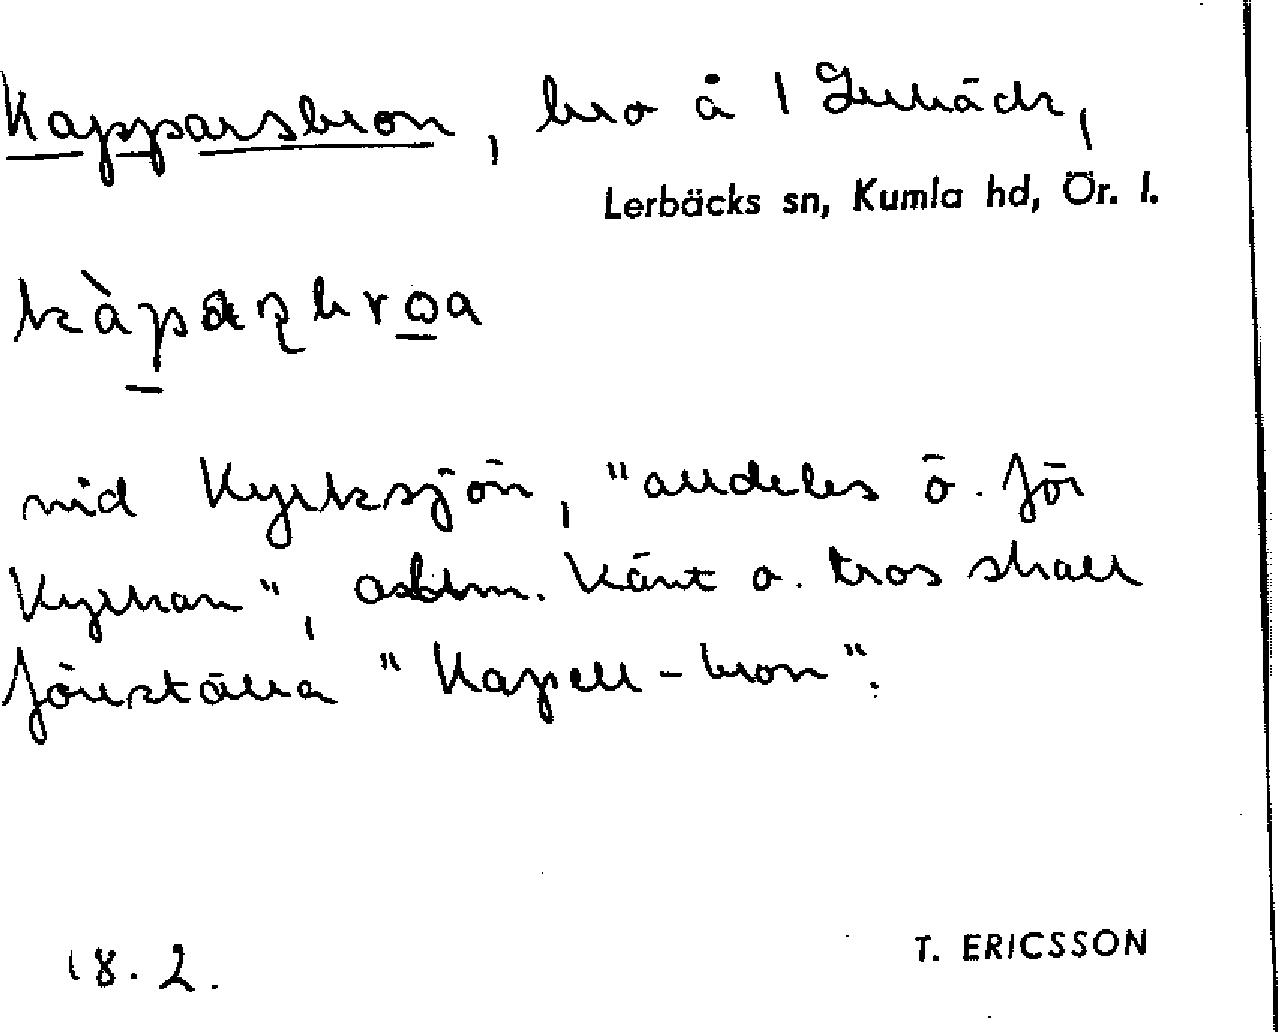 Kapparsbron, bro å 1 Lerbäck,
Lerbäcks sn, Kumla hd, Ör. l.
kàpaʂbroa
vid Kyrksjön, "alldeles ö. för
Kyrkan", allm. känt o. tros skall
föreställa "Kapell-bron".
18.2.
T. ERICSSON